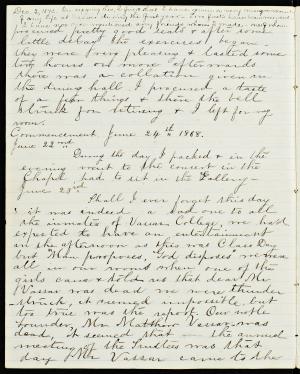 procured pretty good seats & after some
little delay the exercises began
they were very pleasing & lasted some
two hours or more afterwards
there was a collation given in
the dining hall I procured a taste
of a few things & then the bell
struck for retiring & I left for my
room.
Commencement June 24th 1868.
June 22nd
During the day I packed & in the
evening went to the concert in the
Chapel had to sit in the Gallery—
June 23rd
Shall I ever forget this day
it was indeed a sad one to all
the inmates of Vassar College, we had
expected to have an entertainment
in the afternoon as this was Class Day
but "Man proposes, God disposes" we were
all in our rooms when one of the
girls came & told us that dear Mr
Vassar was dead we were thunder
struck, it seemed impossible but
too true was the report. Our noble
founder, Mr Matthew Vassar was
dead, it seemed that the annual
meeting of the Trustees was that
day & Mr Vassar came to the